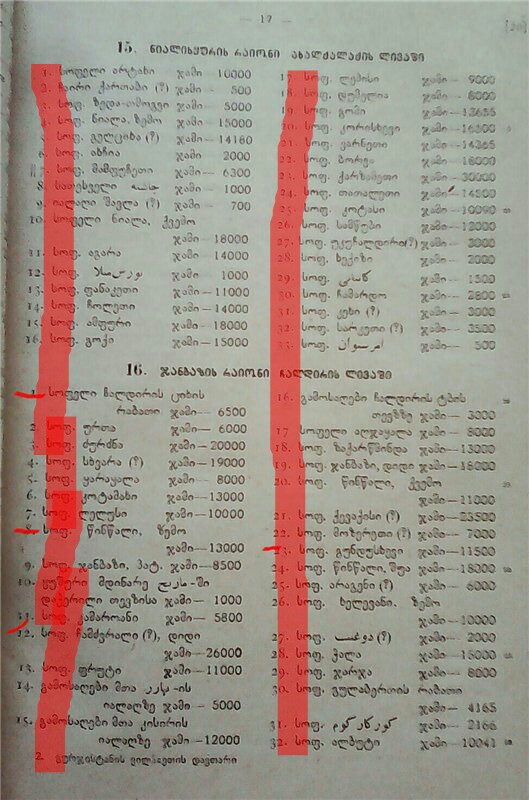 — 17 —
15. ნიალისყურის რაიონი ახალქალაქის ლივაში
1. სოფელი არტახი ჯამი — 10000
2. ჩეირი ქართაბი (?) ჯამი — 500
3. სოფ. ზედა-თმოგვი ჯამი — 5000
4. სოფ. ნიალა, ზემო ჯამი — 15000
სოფ. გულციხა (?) ჯამი — 14180
6. სოფ. აბჩია ჯამი 2000
7. სოფ. მამფუჩეთი ჯამი — 6300
8. სათესველი ჯამი — 1000
9. იალაღი შავლა (?) ჯამი — 700
10. სოფელი ნიალა, ქვემო
ჯამი — 18000
11. სოფ. აგარა ჯამი — 14000
12. სოფ. ჯამი 1000
13. სოფ. ფანაკეთი ჯამი — 11000
14. სოფ. ჩოლეთი ჯამი — 14000
15. სოფ. ამფური ჯამი — 18000
16. სოფ. გოქი ჯამი — 15000
17. სოფ. ლებისი ჯამი — 9000
18. სოფ. დუმელია ჯამი — 8000
19. სოფ. გომი ჯამი — 13655
20. სოფ. კორისხევი ჯამი — 16500
21. სოფ. ვარნეთი ჯამი — 14365
22. სოფ. ბორვა ჯამი — 18000
23. სოფ. ქარზამეთი ჯამი — 30000
24. სოფ. თათალეთი ჯამი — 14500
25. სოფ. კოტასი ჯამი — 10090
26. სოფ. სამწუბი ჯამი — 12000
27. სოფ. უკუჩალდირი (?) ჯამი — 3000
28. სოფ. სექიზი ჯამი — 2000
29. სოფ. ჯამი — 1500
30. სოფ. ჩამარდო ჯამი — 2800
31. სოფ. კეხი (?) ჯამი — 3000
32. სოფ. სარკეთი (?) ჯამი — 3500
33. სოფ. ჯამი — 500
16. ჯანბაზის რაიონი ჩალდირის ლივაში
1. სოფელი ჩალდირის ციხის
რაბათი ჯამი — 6500
2. სოფ. ურთა ჯამი — 6000
3. სოფ. ძურძნა ჯამი — 20000
4. სოფ. სხვარა (?) ჯამი — 19000
5. სოფ. ყარაყალა ჯამი — 8000
6. სოფ. კოტამახი ჯამი — 13000
7. სოფ. ლელუსი ჯამი — 10000
8. სოფ. წინწალი, ზემო
ჯამი — 13000
9. სოფ. ჯანბაზი, პატ. ჯამი — 8500
10. ყუშერი მდინარე -ში
დაჭერილი თევზისა ჯამი — 1000
11. სოფ. კამაროანი ჯამი — 5800
12. სოფ. ჩამძვრალი (?), დიდი
ჯამი — 26000
13. სოფ. ფრუტი ჯამი — 11000
14. გამოსაღები მთა -ის
იალაღზე ჯამი — 5000
15. გამოსაღები მთა კისირის
იალაღზე ჯამი — 12000
16. გამოსაღები ჩალდირის ტბის
თევზზე ჯამი — 3000
17. სოფელი აღჯაყალა ჯამი — 8000
18. სოფ. ზაქარწმინდა ჯამი — 13000
19. სოფ. ჯანბაზი, დიდი ჯამი — 18000
20. სოფ. წინწალი, ქვემო
ჯამი — 11000
21. სოფ. ქევაქისი (?) ჯამი — 23500
22. სოფ. მოზერეთი (?) ჯამი — 7000
სოფ. გუნდუსხევი ჯამი — 11500
24. სოფ. წინწალი, შუა ჯამი — 18000
25. სოფ. არაგენი (?) ჯამი — 6000
26. სოფ. ხელევანი, ზემო
ჯამი — 10000
27. სოფ. (?) ჯამი — 2000
28. სოფ. ქალა ჯამი — 15000
29. სოფ. ჯარჯა ჯამი — 8000
30. სოფ. გულაბერთის რაბათი
ჯამი — 4165
31. სოფ. ჯამი — 2166
32. სოფ. ალბუტი ჯამი — 10041
2. გურჯისტანის ვილაიეთის დავთარი